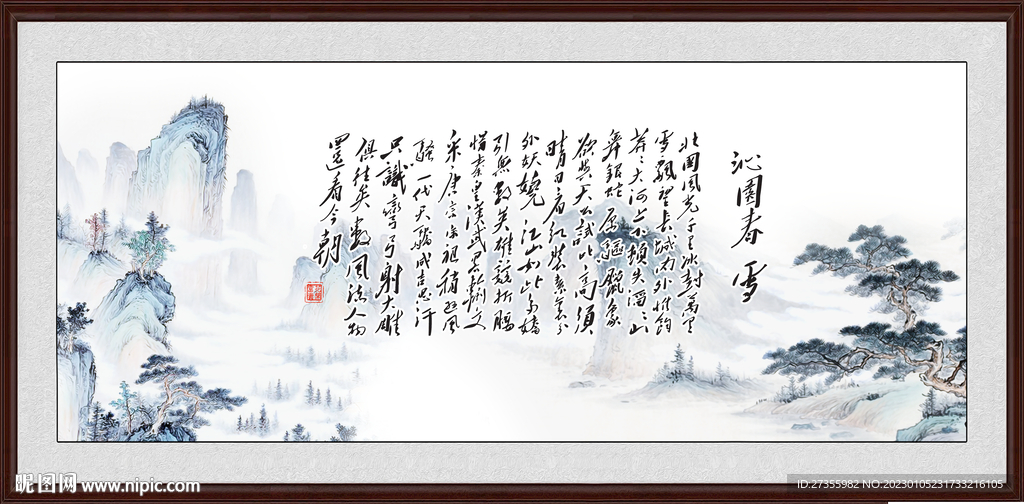 沁園春 雪
北國風光千里冰封萬里
雪飄望長城內外惟餘
莽〻大河上下頓失滔〻山
舞銀蛇原驅臘象
欲與天公試比高須
晴日看紅裝素裹分
外妖嬈江山如此多嬌
引無數英雄競折腰
惜秦皇漢武略輸文
采唐宗宋祖稍遜風
騷一代天驕成吉思汗
只識彎弓射大雕
俱往矣數風流人物
還看今朝
昵图网 www.nipic.com
ID:27355982 NO:20230105231733216105